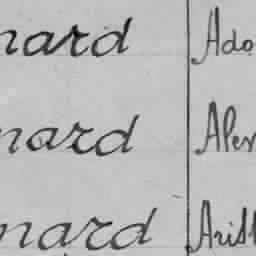 nard Ado
nard Alex
nard Arist